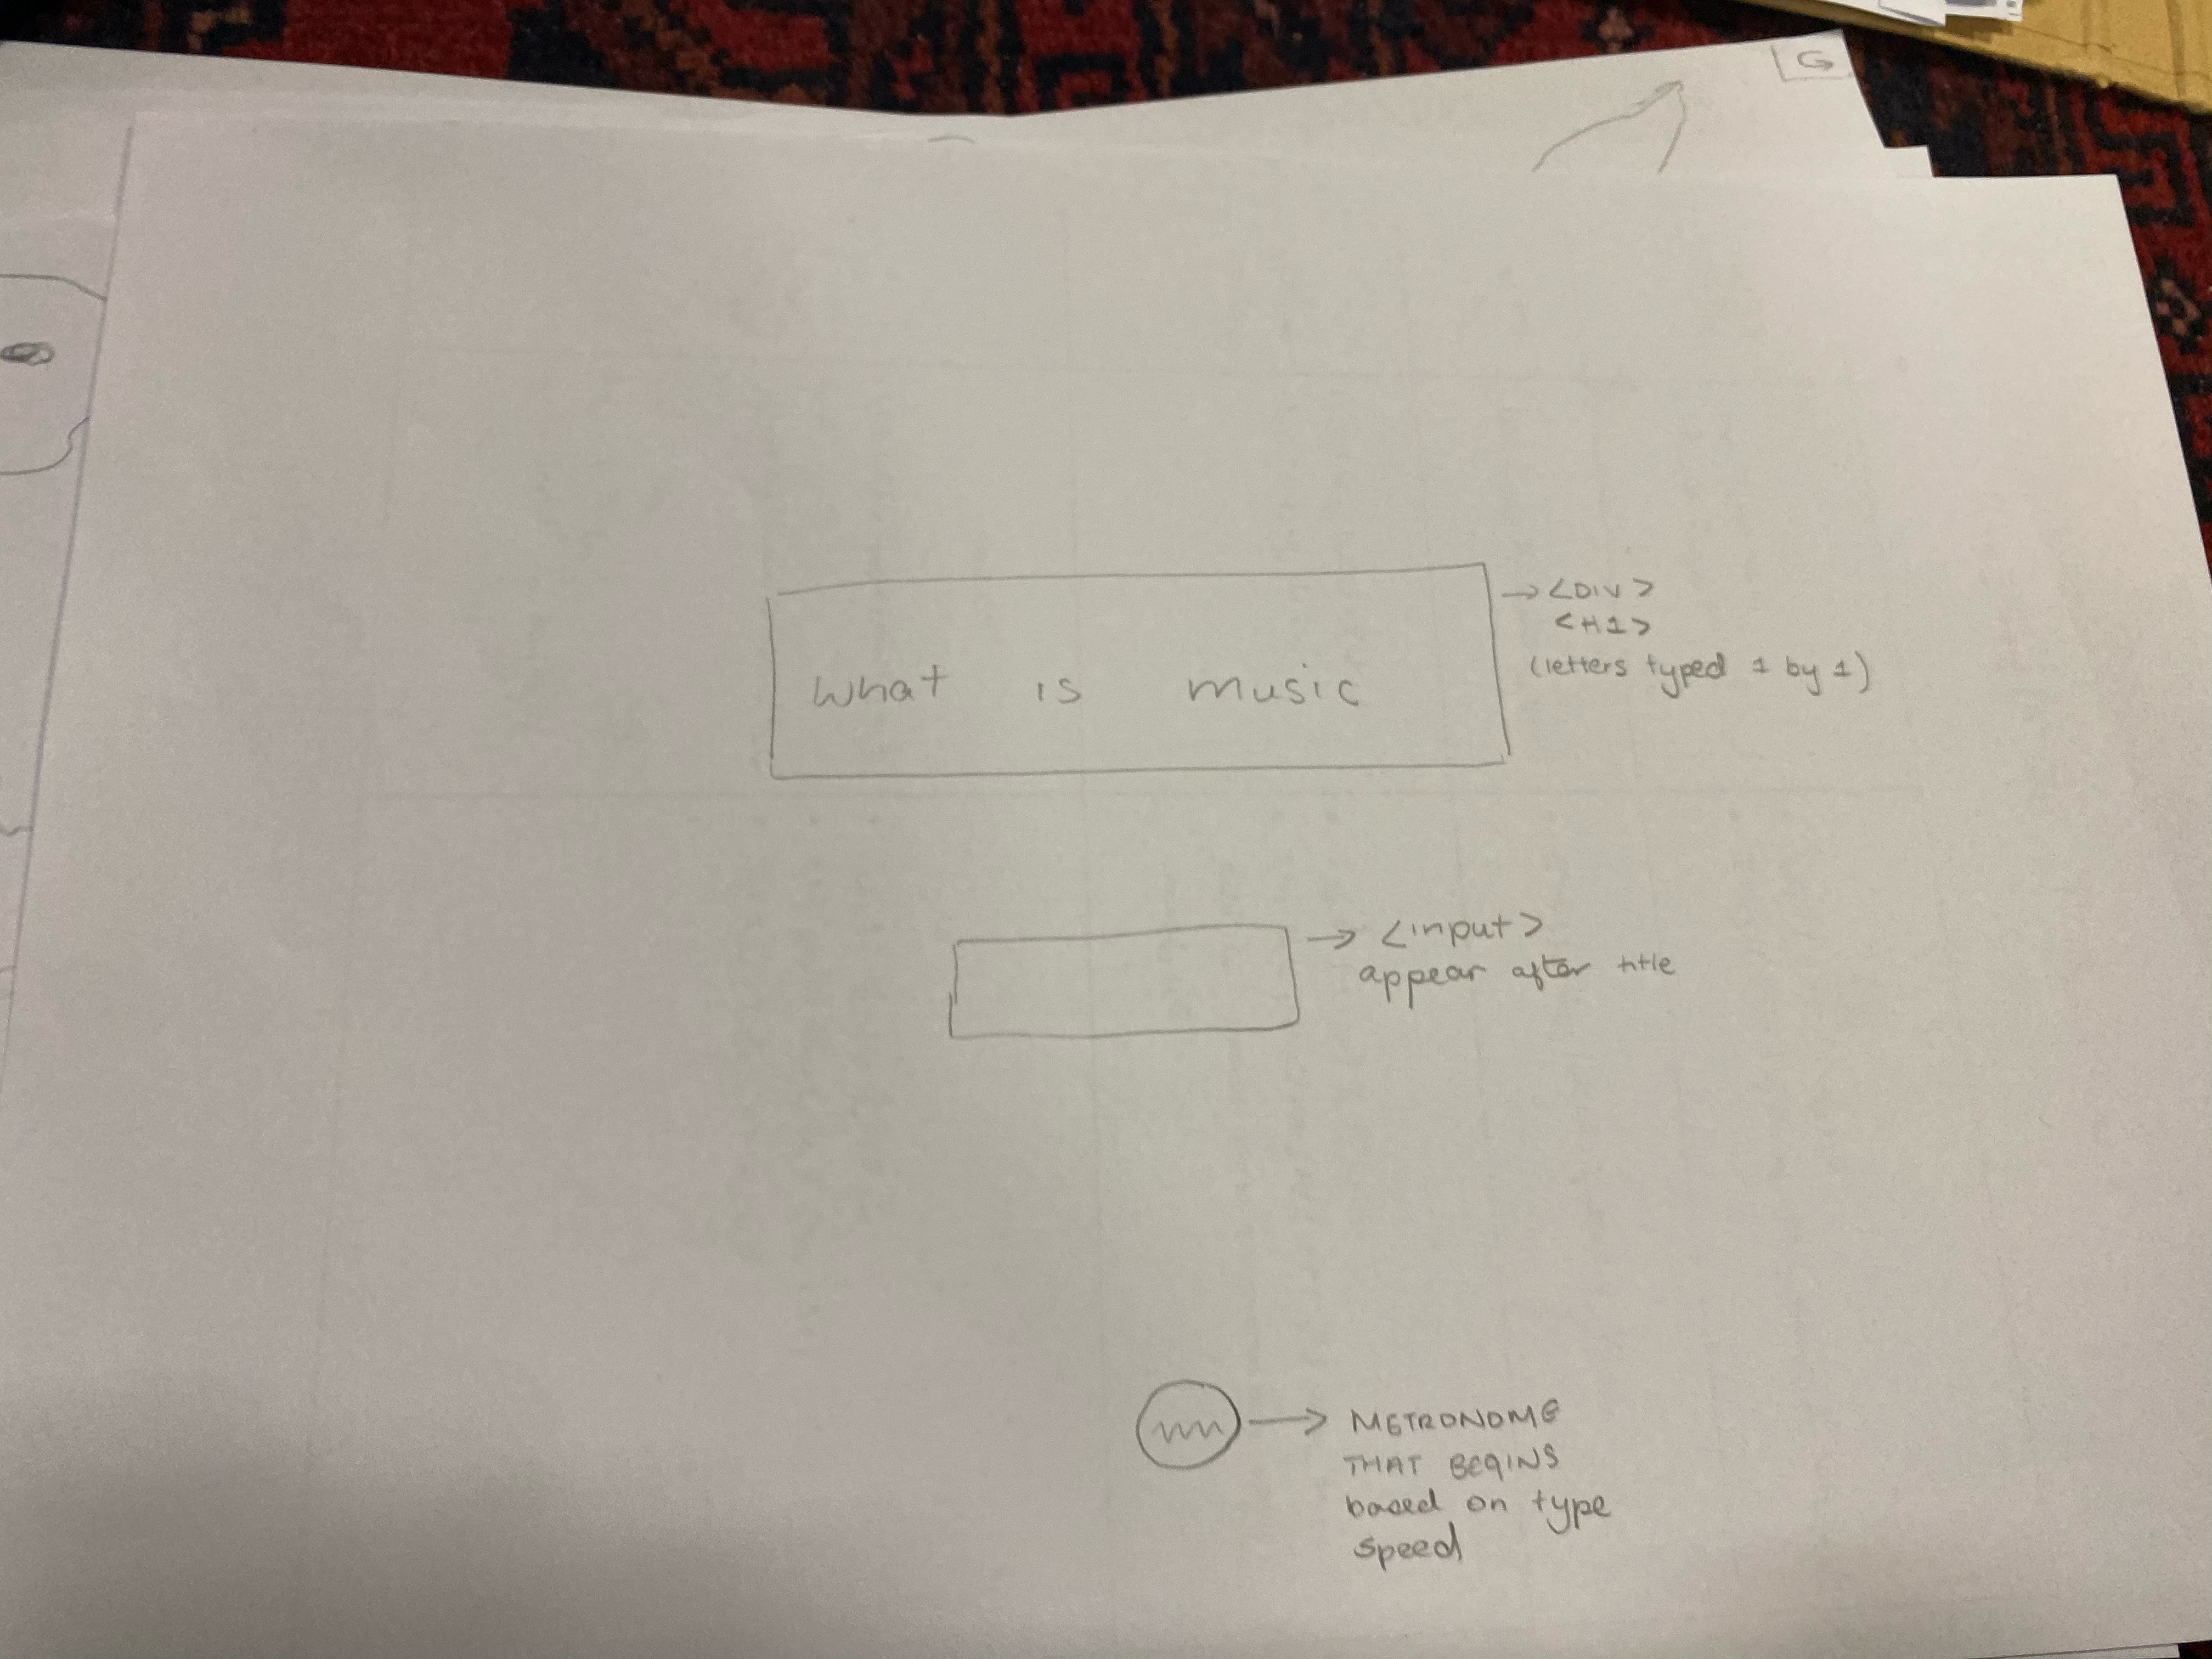 G
What is music
→ <DIV>
<H1>
(letters typed 1 by 1)
→ <input>
appear after title
→ METRONOME
THAT BEGINS
based on type
speed